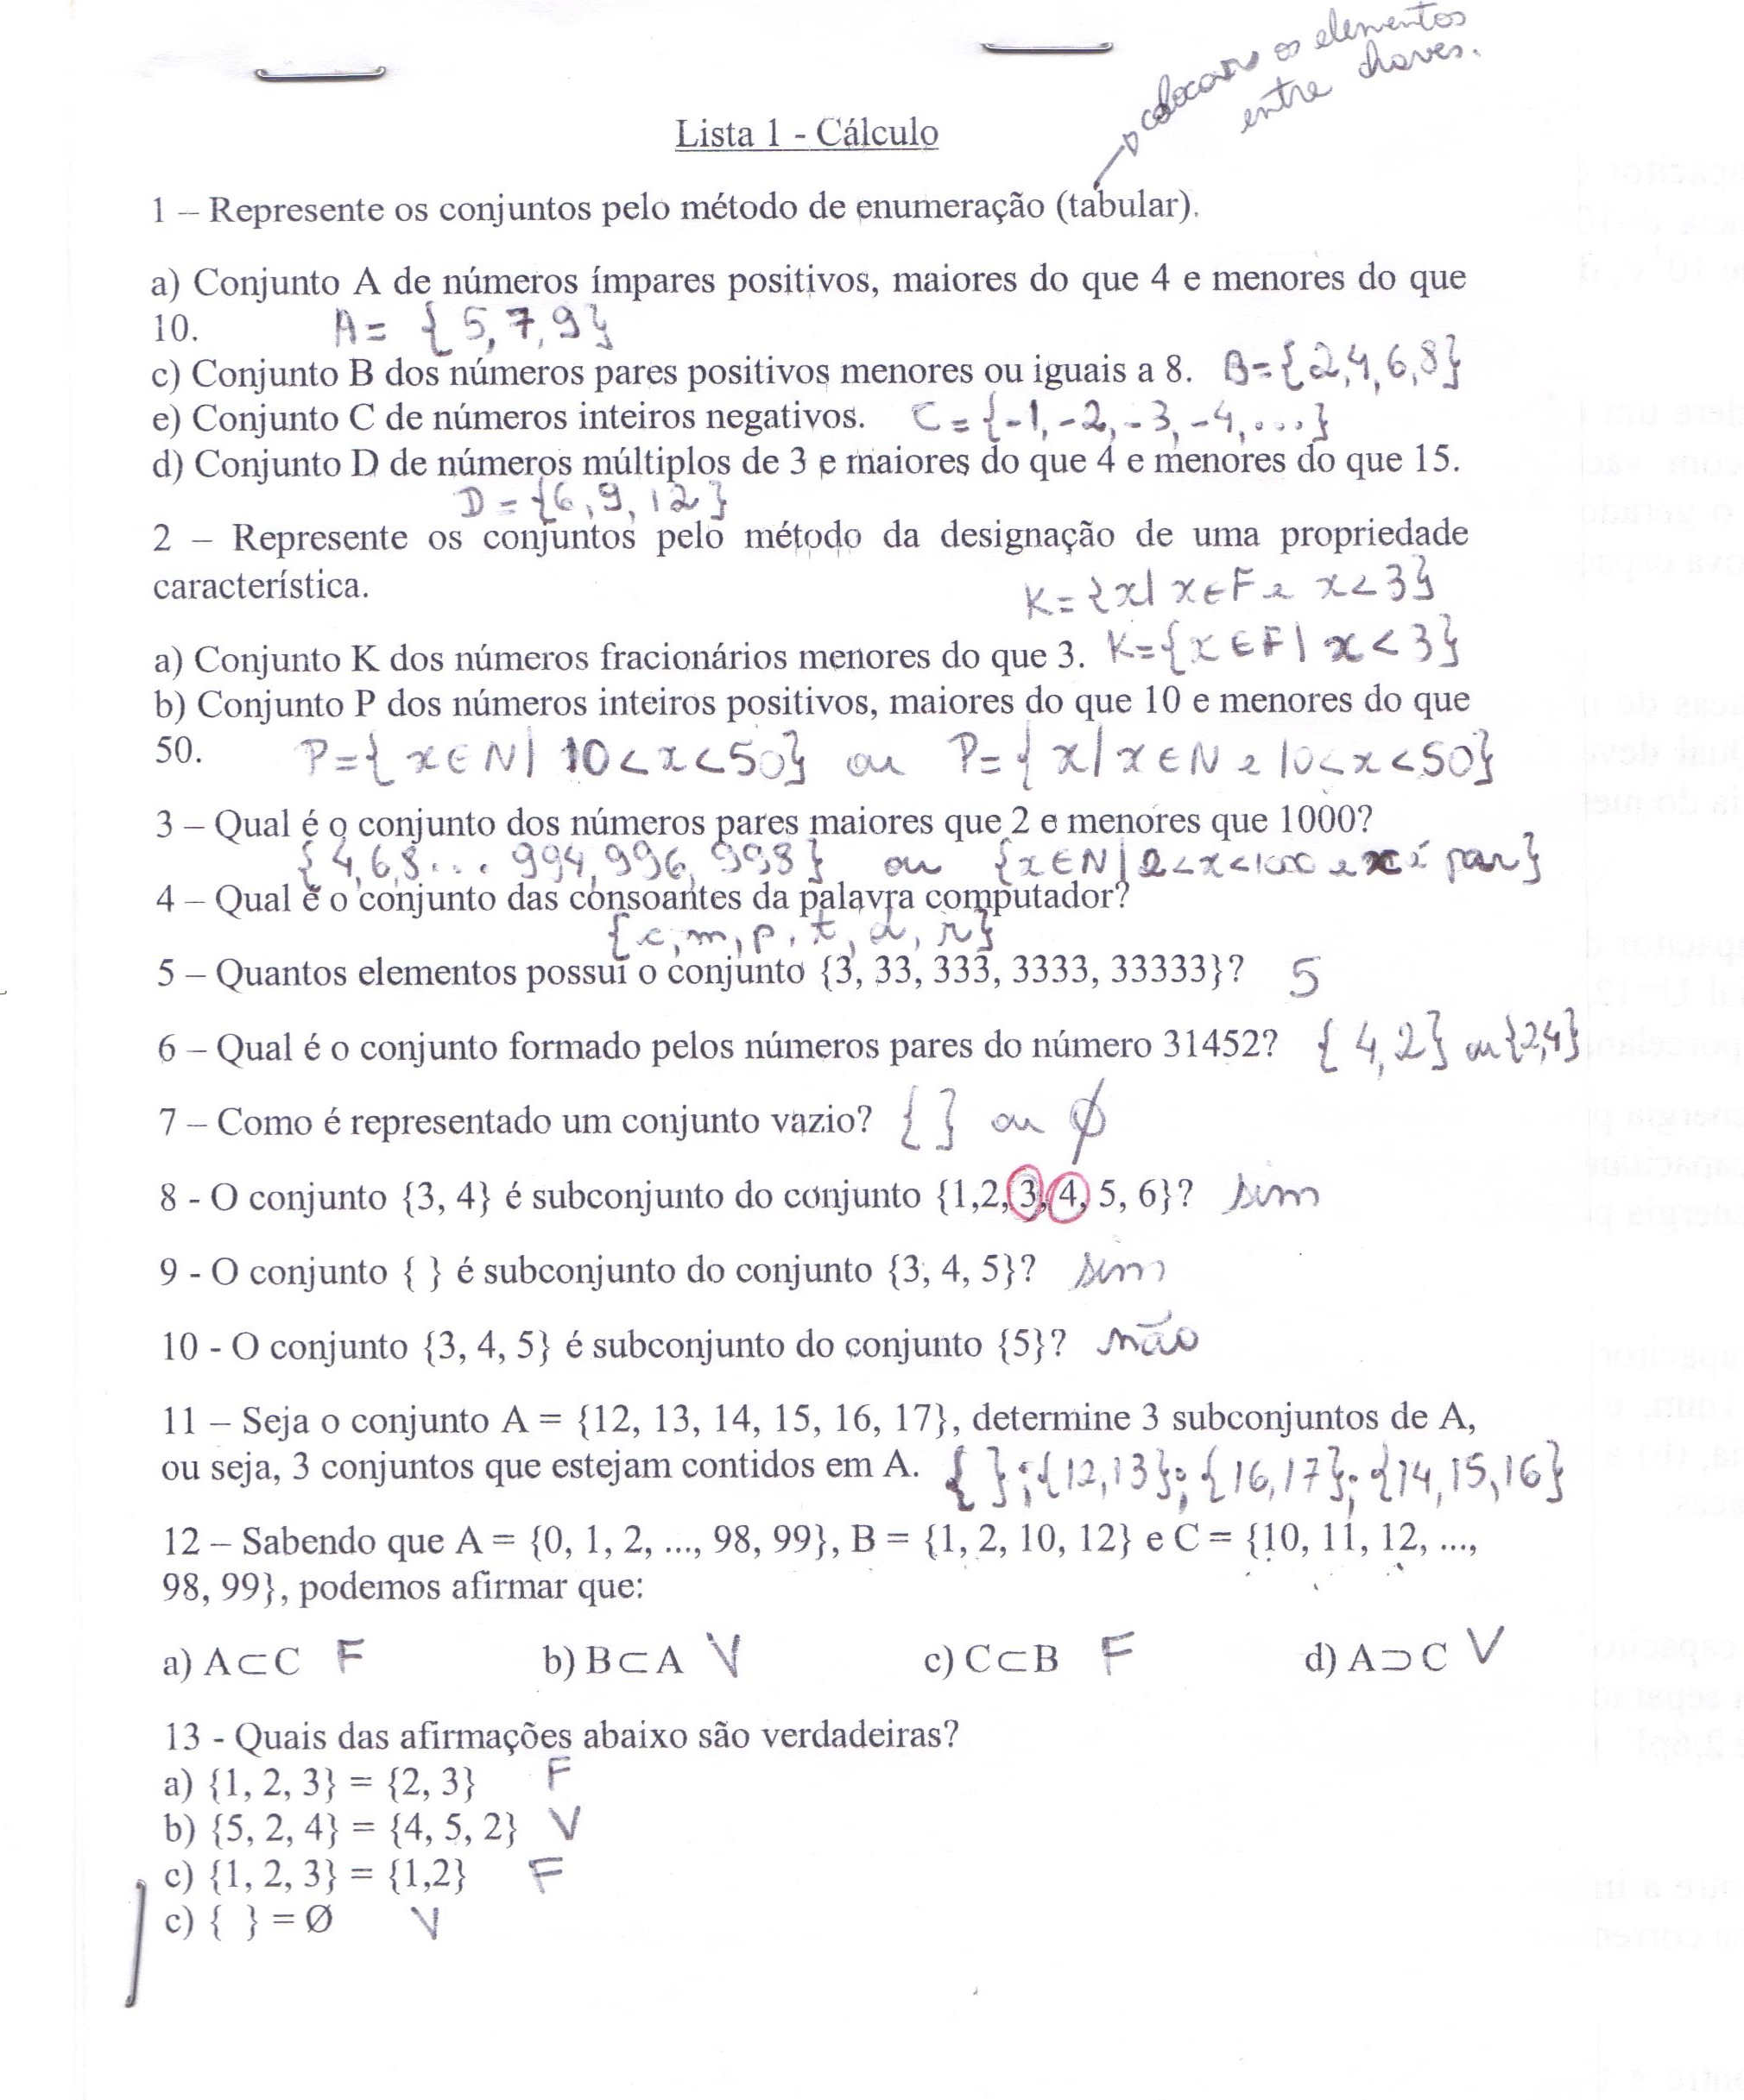 colocar os elementos
entre chaves.
Lista 1 - Cálculo
1 – Represente os conjuntos pelo método de enumeração (tabular).
a) Conjunto A de números ímpares positivos, maiores do que 4 e menores do que
10. A = {5, 7, 9}
c) Conjunto B dos números pares positivos menores ou iguais a 8. B={2,4,6,8}
e) Conjunto C de números inteiros negativos. C = {-1, -2, -3, -4, ...}
d) Conjunto D de números múltiplos de 3 e maiores do que 4 e menores do que 15.
D = {6, 9, 12}
2 – Represente os conjuntos pelo método da designação de uma propriedade
característica. K = {x| x ∈ F e x < 3}
a) Conjunto K dos números fracionários menores do que 3. K={x ∈ F | x < 3}
b) Conjunto P dos números inteiros positivos, maiores do que 10 e menores do que
50. P={x ∈ N | 10 < x < 50} ou P={x | x ∈ N e 10 < x < 50}
3 – Qual é o conjunto dos números pares maiores que 2 e menores que 1000?
{4, 6, 8 ... 994, 996, 998} ou {x ∈ N | 2 < x < 1000 e x é par}
4 – Qual é o conjunto das consoantes da palavra computador?
{c, m, p, t, d, r}
5 – Quantos elementos possui o conjunto {3, 33, 333, 3333, 33333}? 5
6 – Qual é o conjunto formado pelos números pares do número 31452? {4,2} ou {2,4}
7 – Como é representado um conjunto vazio? { } ou ϕ
8 - O conjunto {3, 4} é subconjunto do conjunto {1,2, 3, 4, 5, 6}? sim
9 - O conjunto { } é subconjunto do conjunto {3, 4, 5}? sim
10 - O conjunto {3, 4, 5} é subconjunto do conjunto {5}? não
11 – Seja o conjunto A = {12, 13, 14, 15, 16, 17}, determine 3 subconjuntos de A,
ou seja, 3 conjuntos que estejam contidos em A. { }; {12,13}; {16,17}; {14,15,16}
12 – Sabendo que A = {0, 1, 2, ..., 98, 99}, B = {1, 2, 10, 12} e C = {10, 11, 12, ...,
98, 99}, podemos afirmar que:
a) A⊂C F b) B⊂A V c) C⊂B F d) A⊃C V
13 - Quais das afirmações abaixo são verdadeiras?
a) {1, 2, 3} = {2, 3} F
b) {5, 2, 4} = {4, 5, 2} V
c) {1, 2, 3} = {1,2} F
c) { } = Ø V